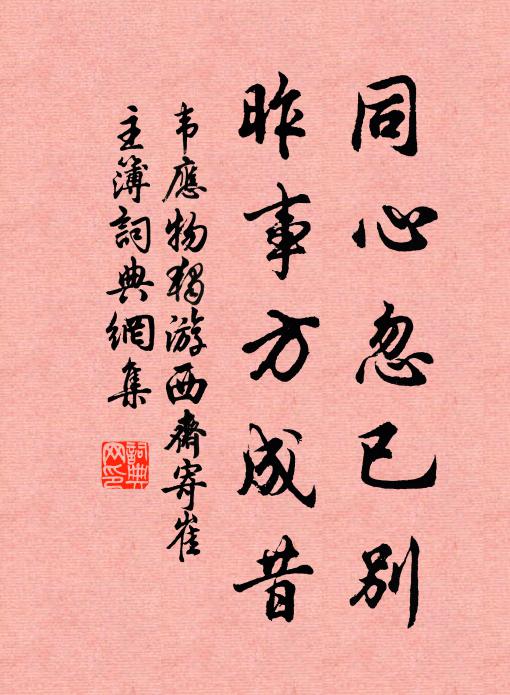 同心忽已别
昨事方成昔
韦應物獨游西齋寄崔
主簿詞典網集
詞典
网印